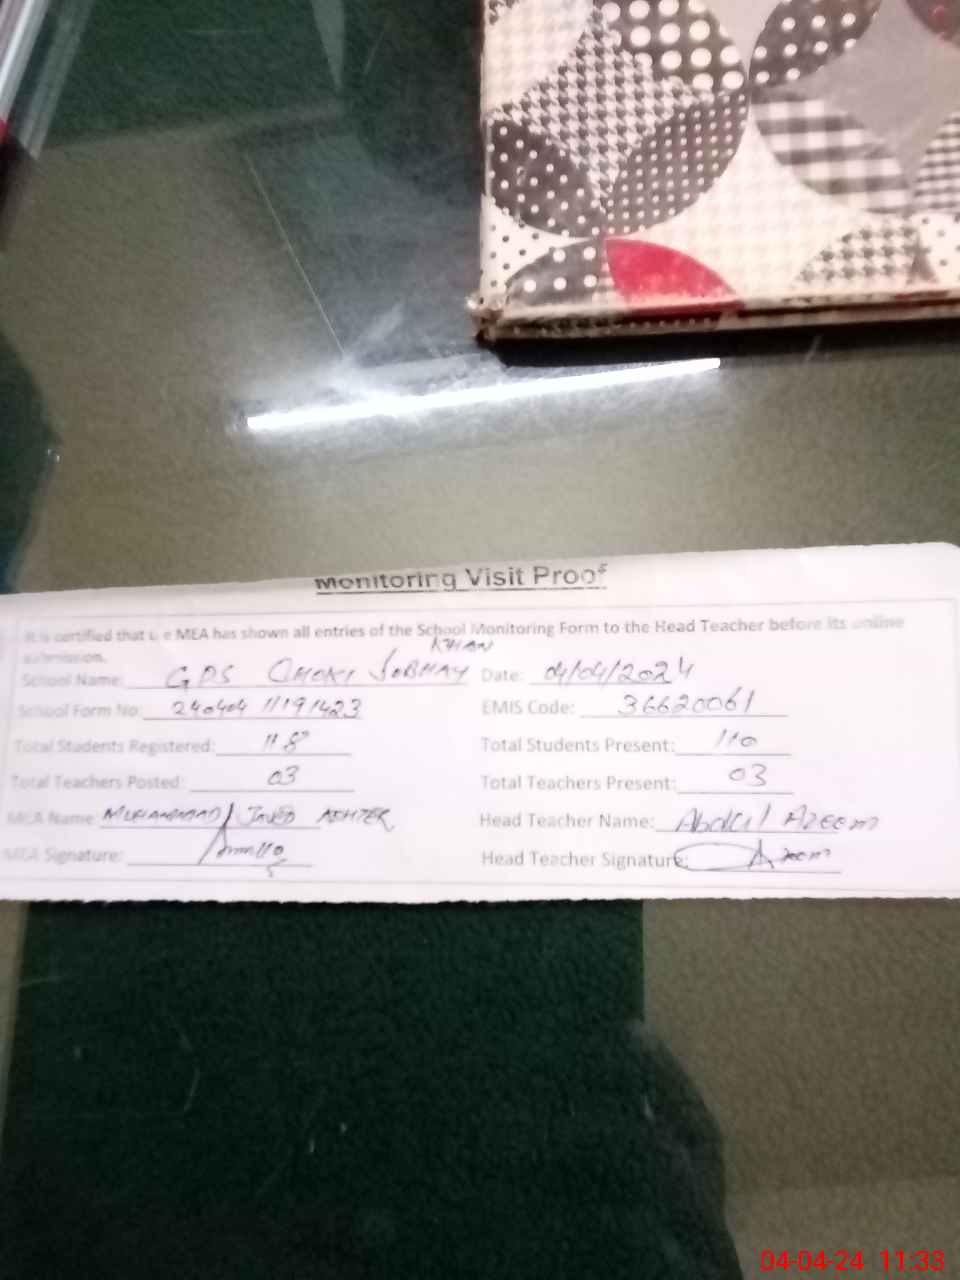 Monitoring Visit Proof
It is certified that the MEA has shown all entries of the School Monitoring Form to the Head Teacher before its online
submission.
KHAN
School Name: GPS CHOKI SOBHAY Date: 04/04/2024
School Form No: 240404 111911423 EMIS Code: 36620061
Total Students Registered: 118 Total Students Present: 110
Total Teachers Posted: 03 Total Teachers Present: 03
MEA Name: MUHAMMAD JAVED AKHTER Head Teacher Name: Abdul Azeem
MEA Signature: Head Teacher Signature: Azeem
04-04-24 11:33